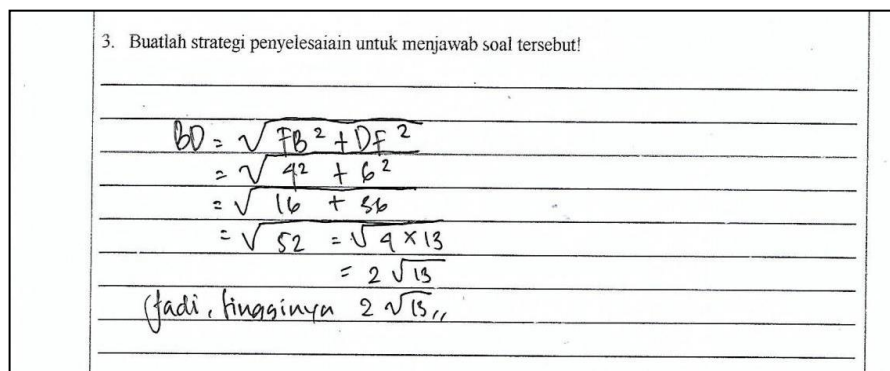 3. Buatlah strategi penyelesaiain untuk menjawab soal tersebut!
BD = √FB² + DF²
= √4² + 6²
= √16 + 36
= √52 = √4 × 13
= 2√13
Jadi, tingginya 2√13,,